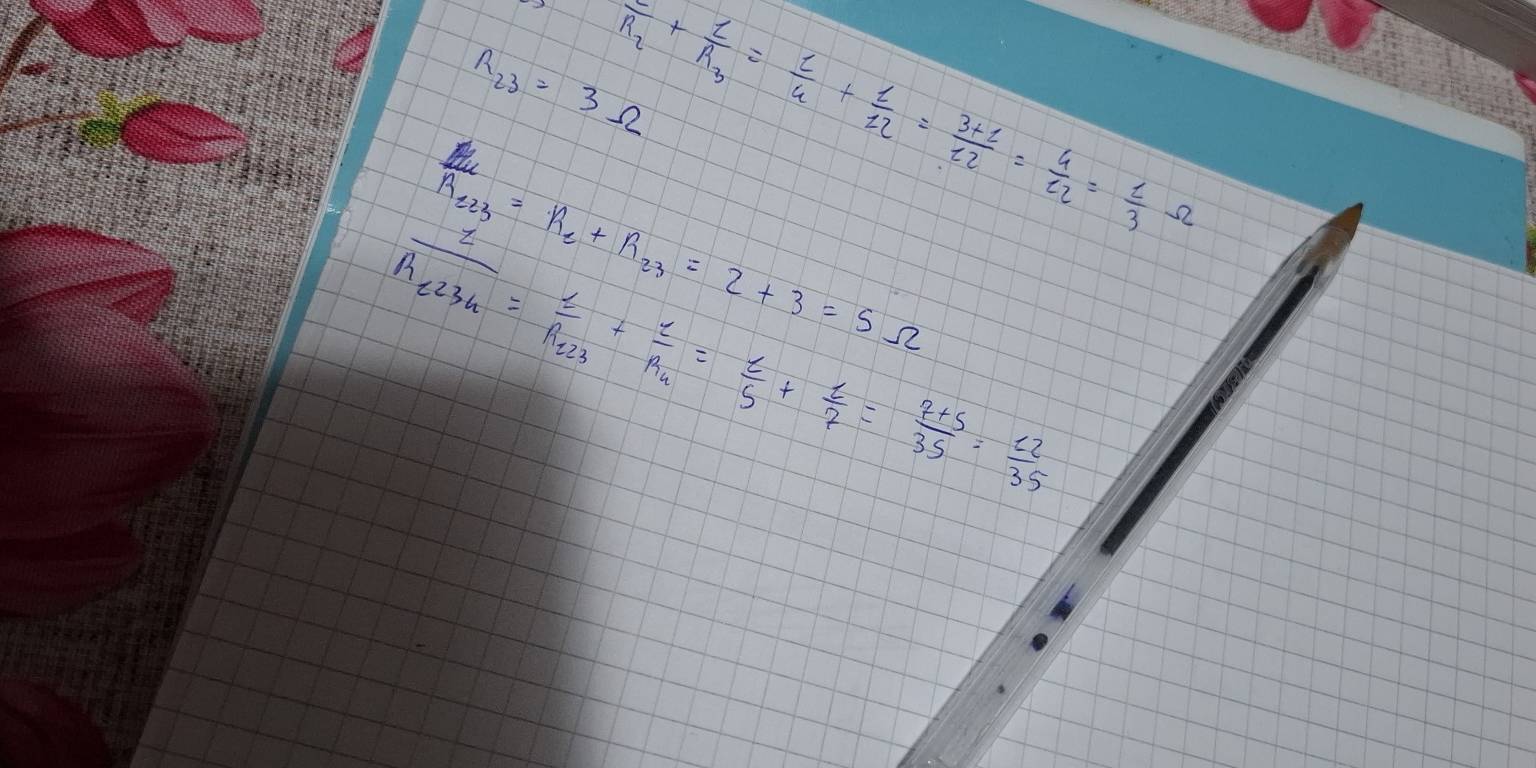 1/R₂ + 1/R₃ = 1/4 + 1/12 = 3+1/12 = 4/12 = 1/3 Ω
R₂₃ = 3 Ω
R₁₂₃ = R₁ + R₂₃ = 2 + 3 = 5 Ω
1/R₁₂₃₄ = 1/R₁₂₃ + 1/R₄ = 1/5 + 1/7 = 7+5/35 = 12/35